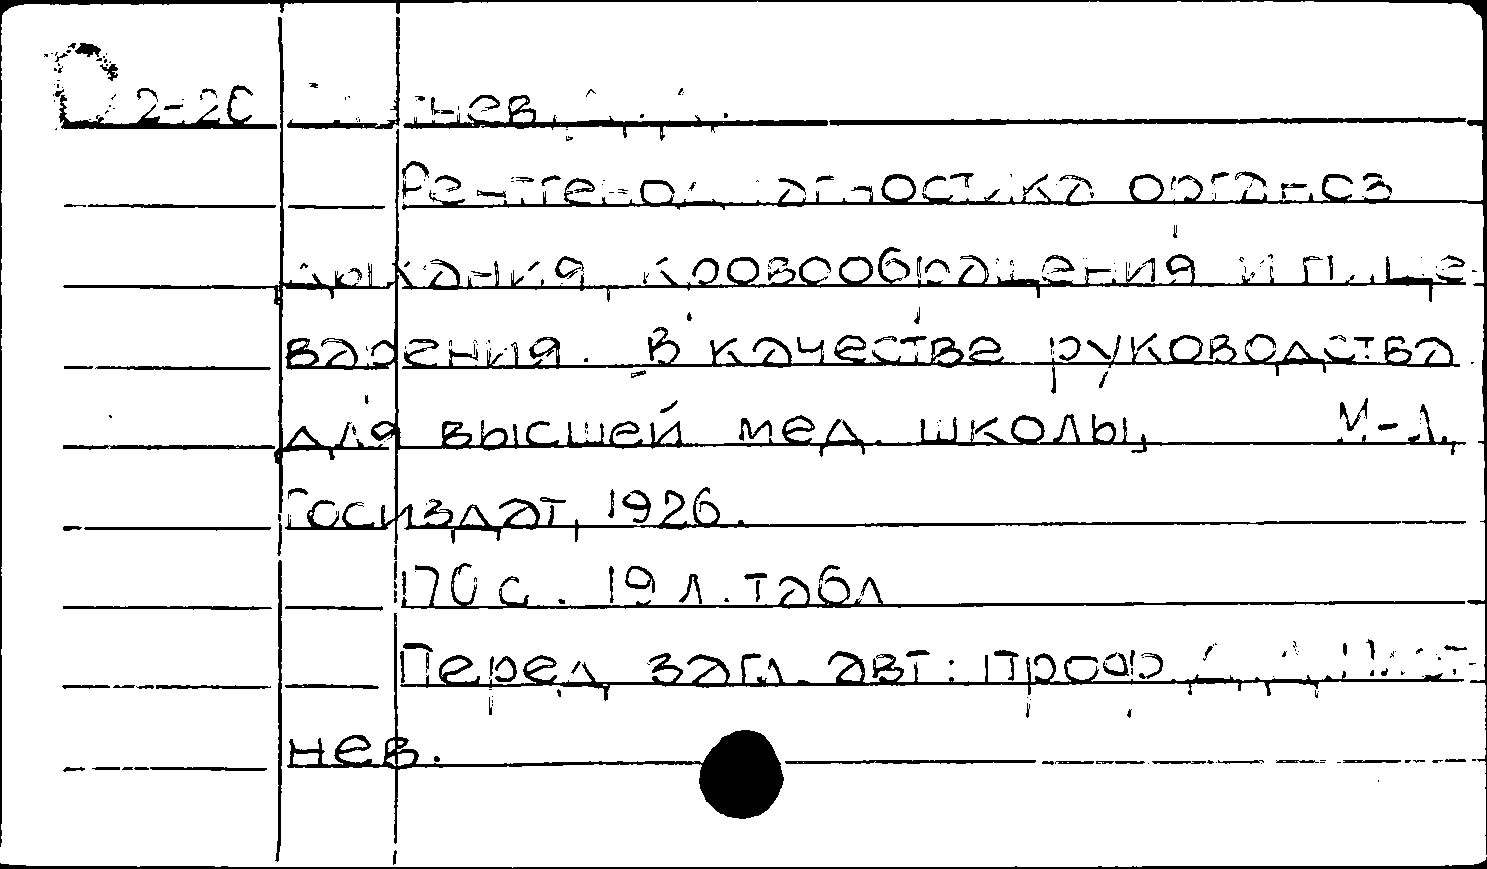 D 2-20 Плетнев, Д. Д.
Рентгенодиагностика органов
дыхания, кровообращения и пище-
варения. В качестве руководства
для высшей мед. школы, М-Л,
Госиздат, 1926.
170 с. 19 л. табл
Перед загл. авт: проф. Д. Д. Плет-
нев.